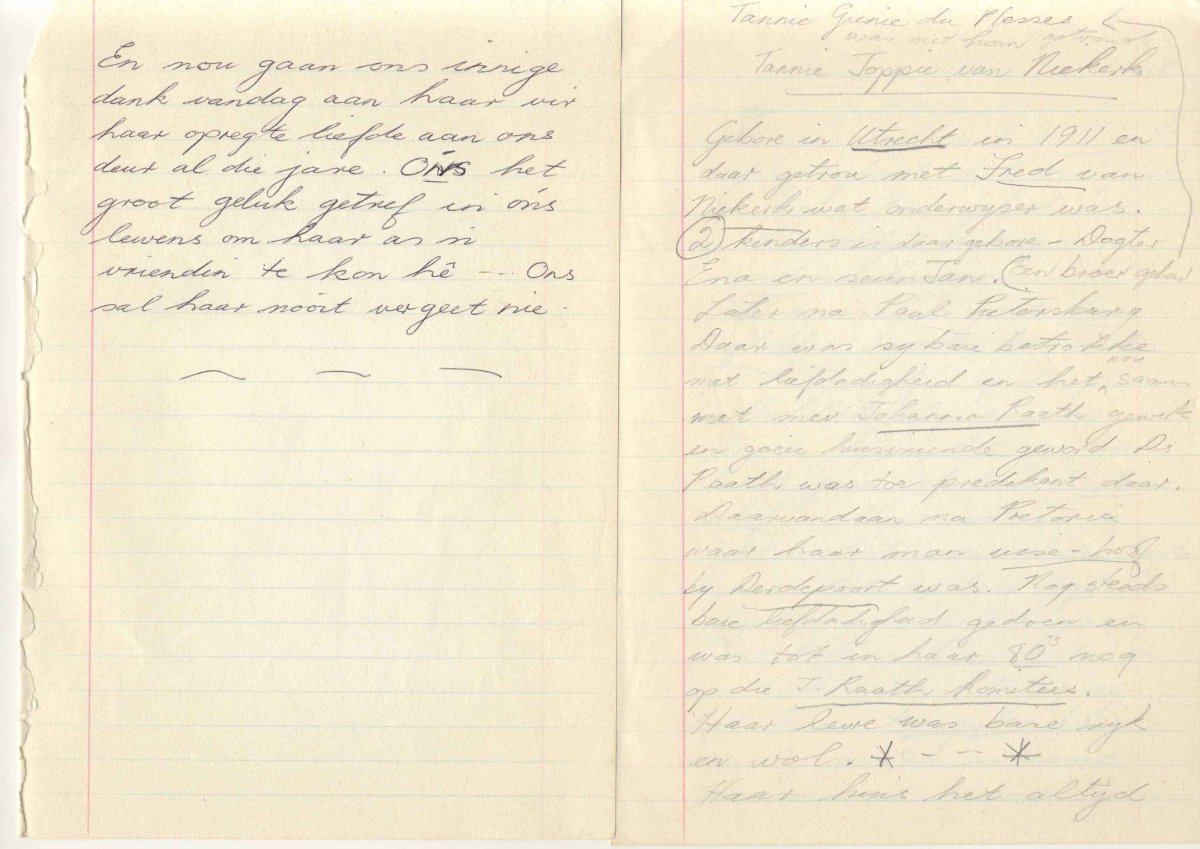 En nou gaan ons innige
dank vandag aan haar vir
haar opregte liefde aan ons
deur al die jare. Óns het
groot geluk getref in óns
lewens om haar as 'n
vriendin te kon hê --- Ons
sal haar nooit vergeet nie.
Tannie Grinie du Plesses
was met hom getroud
Tannie Joppie van Niekerk
Gebore in Utrecht in 1911 en
daar getrou met Fred van
Niekerk wat onderwyser was.
2 kinders is daar gebore - Dogter
Ena en seun Jan. (een broer gehad
Later na Paul Pietersburg
Daar was sy baie betrokke
met liefdadigheid en het nou saam
met mev Johanna Raath gewerk
en goeie huisvriende geword Ds
Raath was toe predikant daar.
Daarvandaan na Pretoria
waar haar man vise-hoof
by Derdepoort was. Nog steeds
baie liefdadigheid gedoen en
was tot in haar 80's nog
op die J-Raath komitees.
Haar lewe was baie ryk
en vol. * - - *
Haar huis het altyd